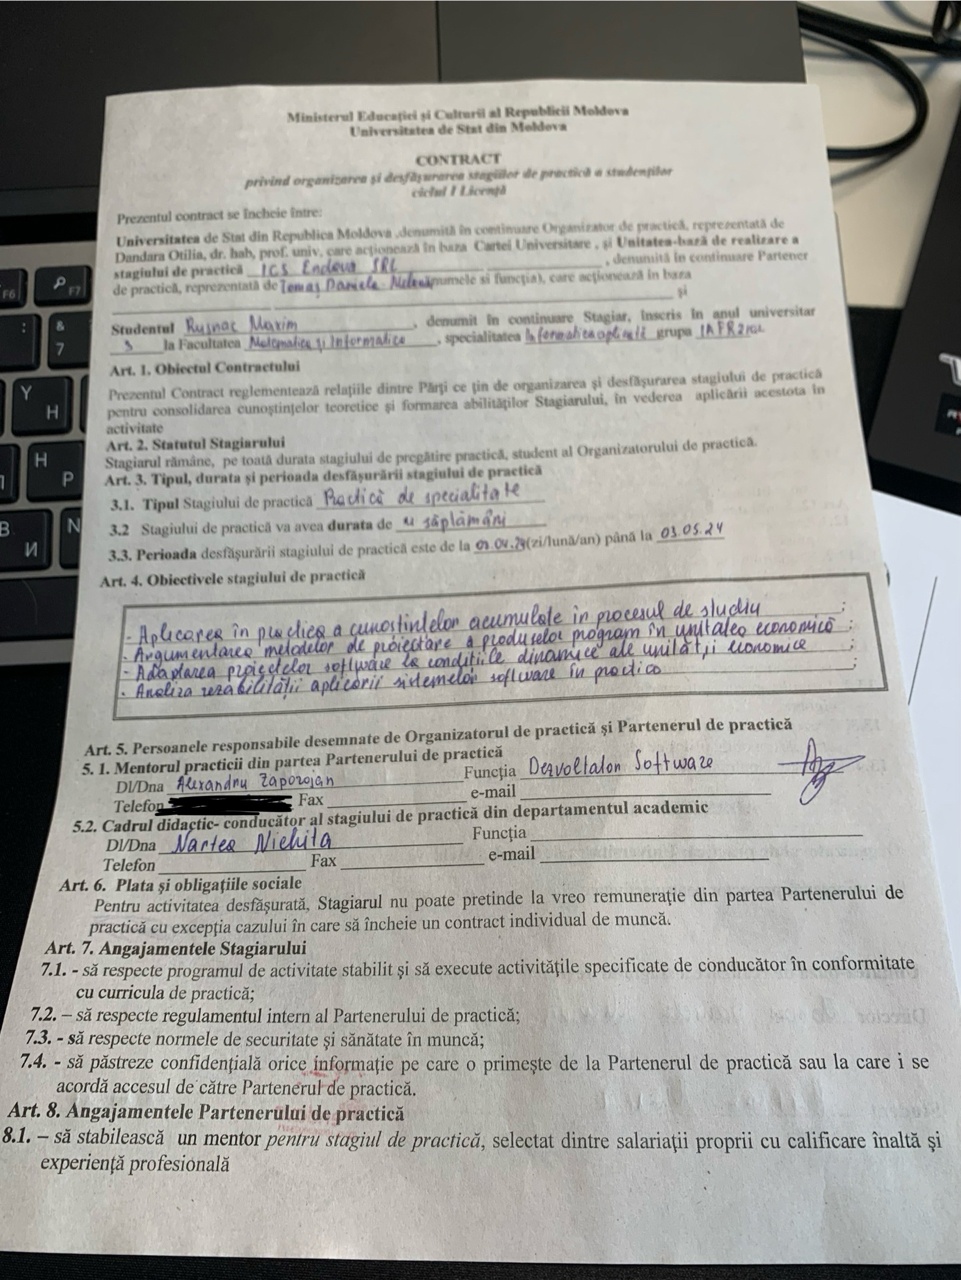 Ministerul Educației și Culturii al Republicii Moldova
Universitatea de Stat din Moldova
CONTRACT
privind organizarea și desfășurarea stagiilor de practică a studenților
ciclul I Licență
Prezentul contract se încheie între:
Universitatea de Stat din Republica Moldova ,denumită în continuare Organizator de practică, reprezentată de
Dandara Otilia, dr. hab, prof. univ, care acționează în baza Cartei Universitare , și Unitatea-bază de realizare a
stagiului de practică ICS Endava SRL , denumită în continuare Partener
de practică, reprezentată de Tomaș Daniela numele si funcția), care acționează în baza
și
Studentul Rusnac Maxim , denumit în continuare Stagiar, înscris în anul universitar
3 la Facultatea Matematica și Informatica , specialitatea Informatica aplicată grupa
Art. 1. Obiectul Contractului
Prezentul Contract reglementează relațiile dintre Părți ce țin de organizarea și desfășurarea stagiului de practică
pentru consolidarea cunoștințelor teoretice și formarea abilităților Stagiarului, în vederea aplicării acestota în
activitate
Art. 2. Statutul Stagiarului
Stagiarul rămâne, pe toată durata stagiului de pregătire practică, student al Organizatorului de practică.
Art. 3. Tipul, durata și perioada desfășurării stagiului de practică
3.1. Tipul Stagiului de practică Practică de specialitate
3.2 Stagiului de practică va avea durata de 4 săptămâni
3.3. Perioada desfășurării stagiului de practică este de la (zi/lună/an) până la 03.05.24
Art. 4. Obiectivele stagiului de practică
- Aplicarea în practica a cunoștintelor acumulate în procesul de studiu ;
- Argumentarea metodelor de proiectare a produselor program în unitatea economică ;
- Adaptarea proiectelor software la condițiile dinamice ale unilății economice ;
- Analiza aplicării sistemelor software în practica
Art. 5. Persoanele responsabile desemnate de Organizatorul de practică și Partenerul de practică
5. 1. Mentorul practicii din partea Partenerului de practică
Dl/Dna Alexandru Zaporojan Funcția Dezvoltator Software
Telefon Fax e-mail
5.2. Cadrul didactic- conducător al stagiului de practică din departamentul academic
Dl/Dna Nartea Nichita Funcția
Telefon Fax e-mail
Art. 6. Plata și obligațiile sociale
Pentru activitatea desfășurată, Stagiarul nu poate pretinde la vreo remunerație din partea Partenerului de
practică cu excepția cazului în care să încheie un contract individual de muncă.
Art. 7. Angajamentele Stagiarului
7.1. - să respecte programul de activitate stabilit și să execute activitățile specificate de conducător în conformitate
cu curricula de practică;
7.2. – să respecte regulamentul intern al Partenerului de practică;
7.3. - să respecte normele de securitate și sănătate în muncă;
7.4. - să păstreze confidențială orice informație pe care o primește de la Partenerul de practică sau la care i se
acordă accesul de către Partenerul de practică.
Art. 8. Angajamentele Partenerului de practică
8.1. – să stabilească un mentor pentru stagiul de practică, selectat dintre salariații proprii cu calificare înaltă și
experiență profesională
F6
F7
&
7
Y
H
H
P
B
N
И